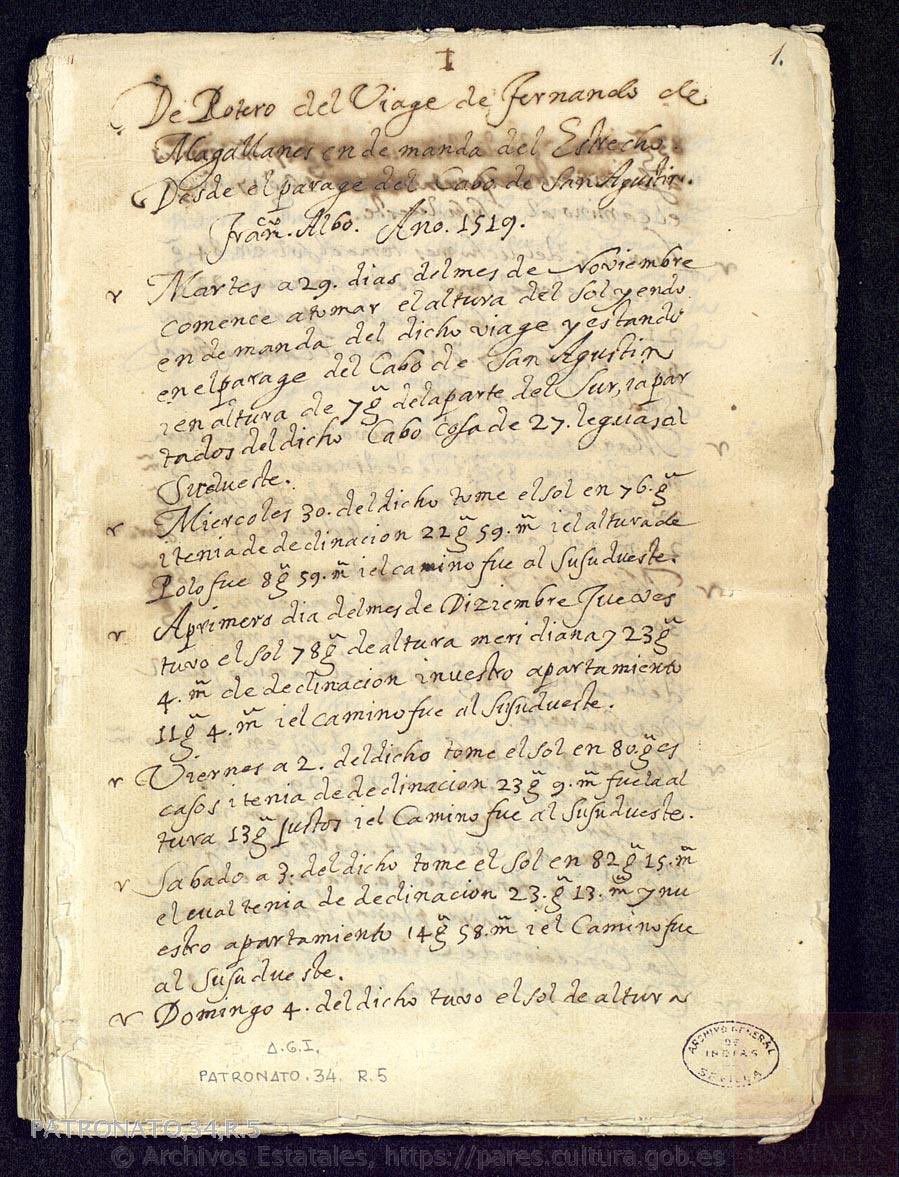 1.
De Rotero del Viage de Fernando de
Magallanes en demanda del Estrecho.
Desde el parage del Cabo de San Agustin.
Francº. Albo. Ano. 1519.
Martes a 29. dias del mes de Noviembre
comence a tomar el altura del Sol yendo
en demanda del dicho viage y estando
en el parage del Cabo de San Agustin
i en altura de 7 gˢ de la parte del Sur, i apar
tados del dicho Cabo cosa de 27. leguas al
Sudueste.
Miercoles 30. del dicho tome el sol en 76. gˢ
i tenia de declinacion 22 gˢ 59. m̃ i el altura de
Polo fue 8 gˢ 59. m̃ i el camino fue al Susudueste.
A primero dia del mes de Diziembre Jueves
tuvo el Sol 78 gˢ de altura meridiana y 23 gˢ
4. m̃ de declinacion i nuestro apartamiento
11 gˢ 4. m̃ i el camino fue al Susudueste.
Viernes a 2. del dicho tome el Sol en 80. gˢ es
casos i tenia de declinacion 23 gˢ 9. m̃ fue la al
tura 13 gˢ justos i el Camino fue al Susudueste.
Sabado a 3. del dicho tome el Sol en 82 gˢ 15. m̃
el cual tenia de declinacion 23. gˢ 13. m̃ y nu
estro apartamiento 14 gˢ 58. m̃ i el Camino fue
al Susudueste.
Domingo 4. del dicho tuvo el sol de altura
A.G.I.
PATRONATO. 34. R.5
ARCHIVO GENERAL
DE
INDIAS
SEVILLA
PATRONATO,34,R.5
© Archivos Estatales, https://pares.cultura.gob.es